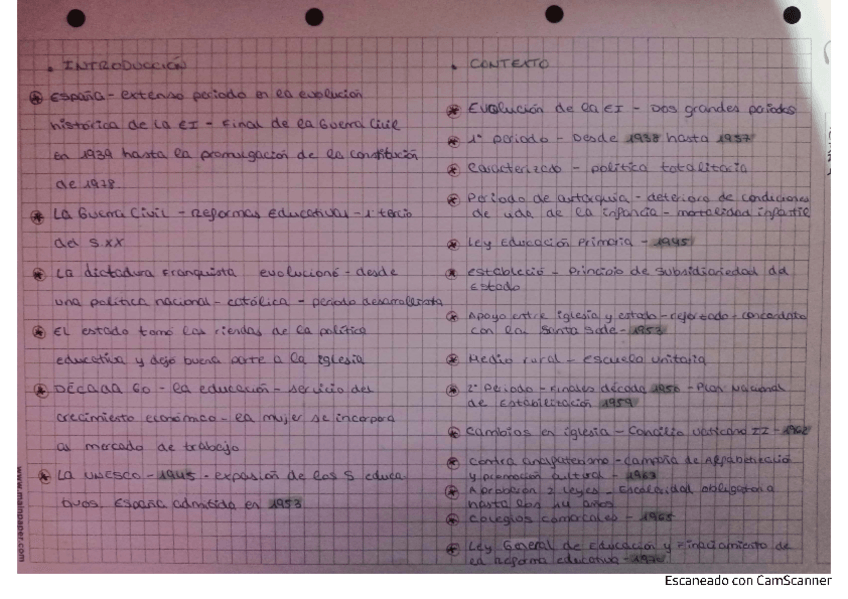 . INTRODUCCIÓN
España - extenso periodo en la evolución
histórica de la EI - Final de la Guerra Civil
en 1939 hasta la promulgación de la constitución
de 1978.
La Guerra Civil - Reformas educativas - 1º tercio
del S.XX
La dictadura franquista evolucionó - desde
una política nacional - católica - periodo desarrollista
El estado tomó las riendas de la política
educativa y dejó buena parte a la iglesia
DÉCADA 60 - la educación - servicio del
crecimiento económico - la mujer se incorpora
al mercado de trabajo
La UNESCO - 1945 - expasión de los S educa
tivos. España admitida en 1953
. CONTEXTO
Evolución de la EI - Dos grandes periodos
1º periodo - Desde 1938 hasta 1957
Caracterizado - política totalitaria
Periodo de autarquía - deterioro de condiciones
de vida de la infancia - mortalidad infantil
Ley Educación Primaria - 1945
estableció - Principio de subsidiariedad del
Estado
Apoyo entre iglesia y estado - reforzado - concordato
con la Santa Sede - 1953
Medio rural - escuela unitaria
2º Periodo - Finales década 1950 - Plan Nacional
de Estabilización 1959
Cambios en iglesia - Concilio Vaticano II - 1962
Contra analfabetismo - campaña de Alfabetización
y promoción cultural - 1963
Aprobación 2 leyes - Escolaridad obligatoria
hasta los 14 años
Colegios comarcales - 1965
Ley General de Educación y Financiamiento de
la Reforma educativa - 1970
www.mainpaper.com
Escaneado con CamScanner